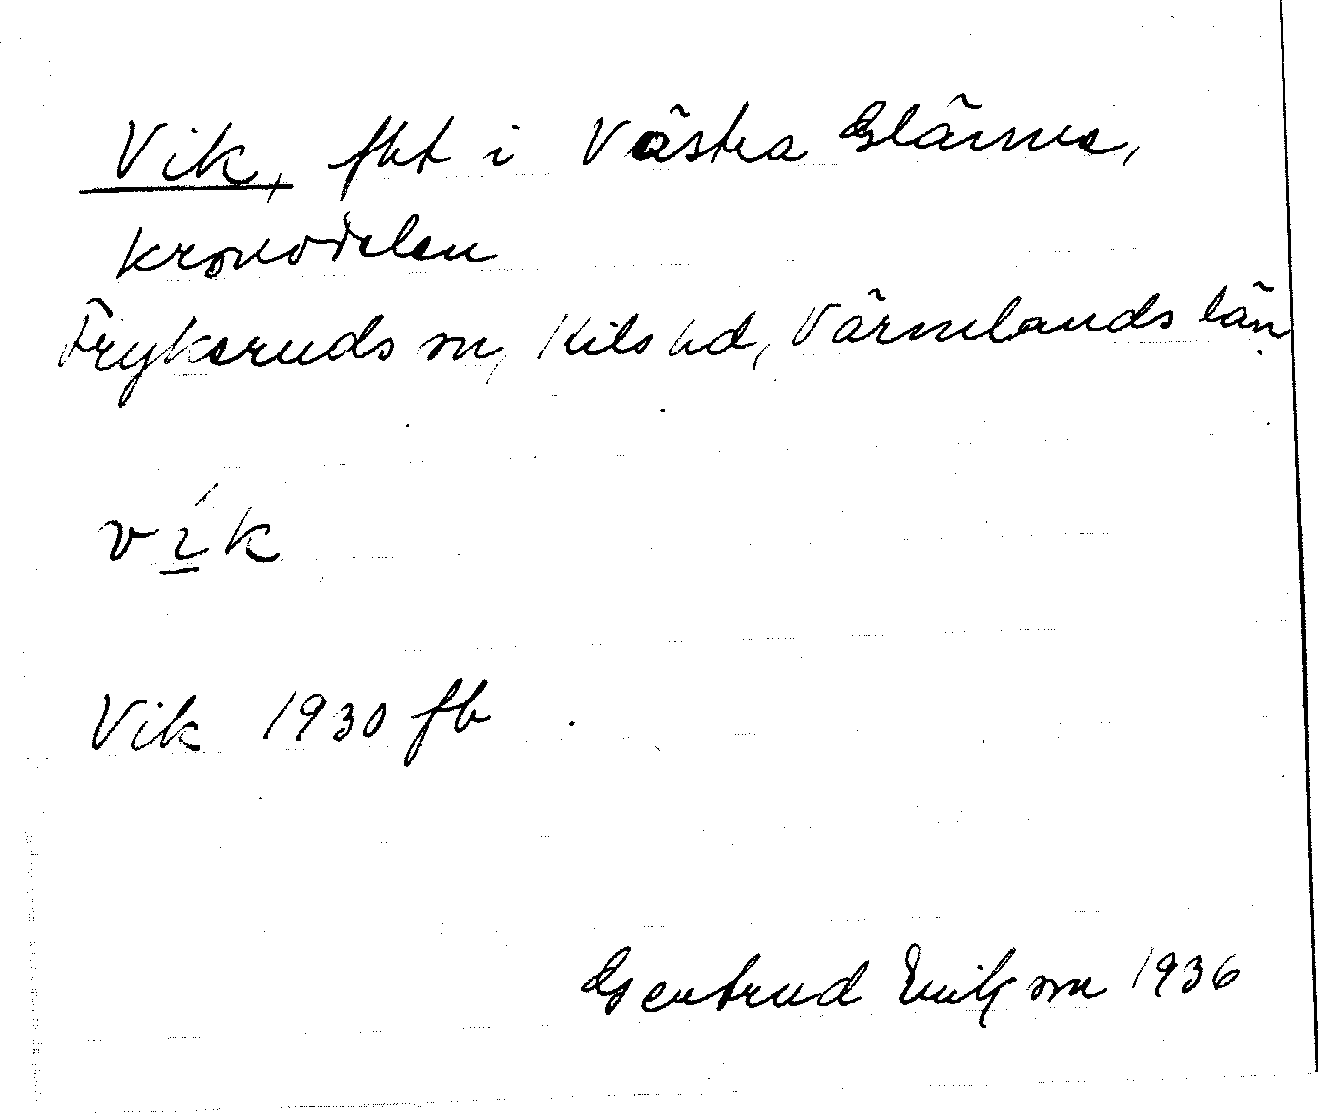 Vik, fht i Västra Glänne,
kronodelen
Frykeruds sn, Kils hd, Värmlands län
vík
Vik 1930 fb
Gertrud Eriksson 1936